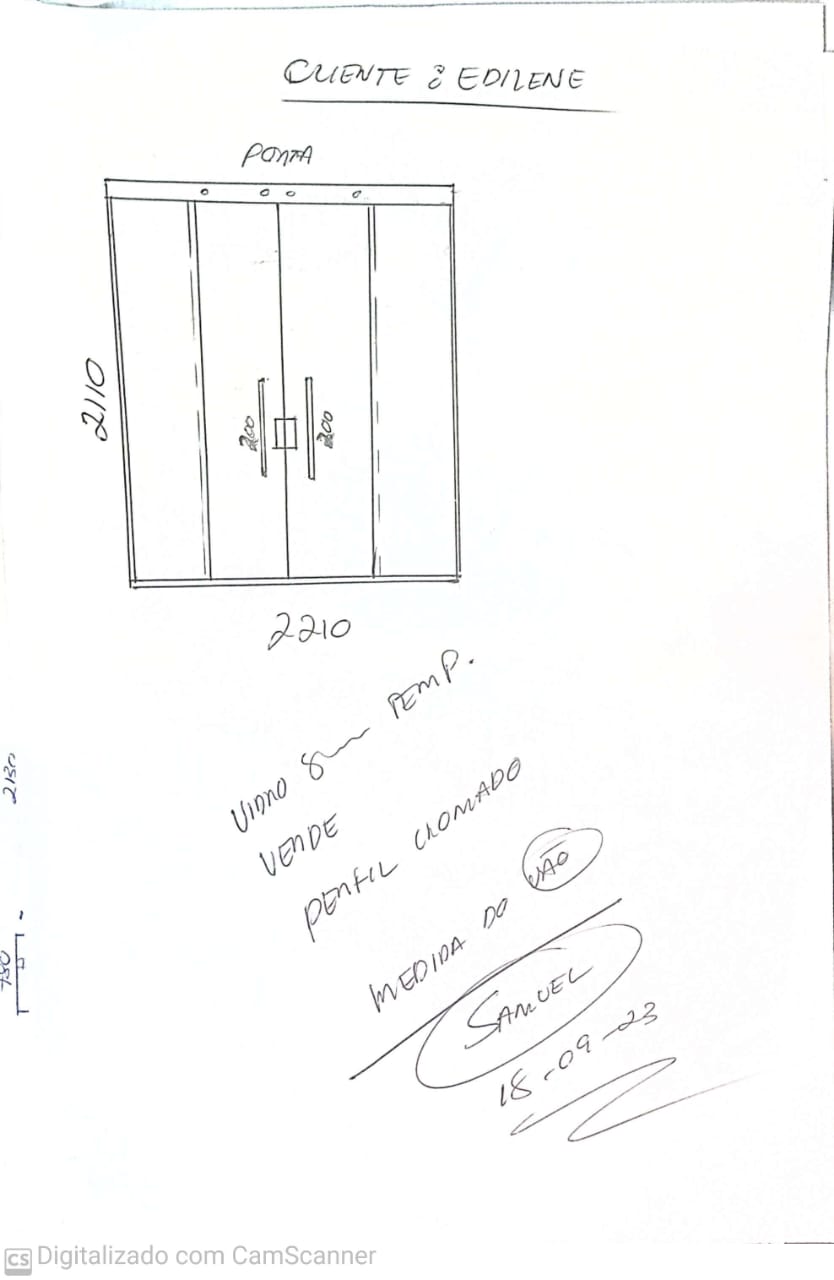 CLIENTE : EDILENE
PORTA
2110
200
200
2210
VIDRO 8mm TEMP.
VERDE
PERFIL CROMADO
MEDIDA DO VÃO
SAMUEL
18-09-23
2130
780
CS Digitalizado com CamScanner